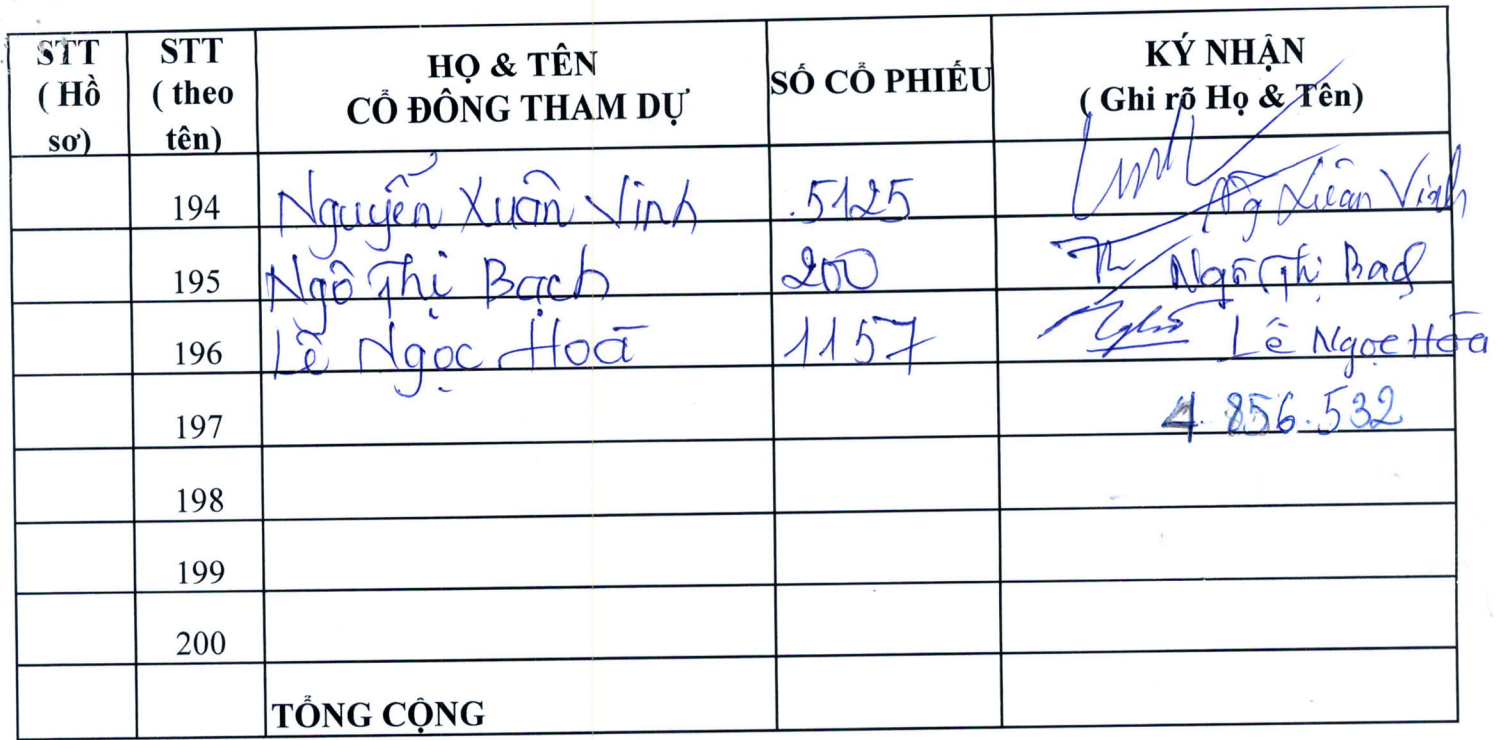 STT ( Hồ sơ) STT ( theo tên) HỌ & TÊN CỔ ĐÔNG THAM DỰ SỐ CỔ PHIẾU KÝ NHẬN ( Ghi rõ Họ & Tên)
194 Nguyễn Xuân Vinh 5125 Ng Xuân Vinh
195 Ngô Thị Bạch 200 Ngô Thị Bạch
196 Lê Ngọc Hoà 1157 Lê Ngọc Hòa
197 4.856.532
198
199
200
TỔNG CỘNG